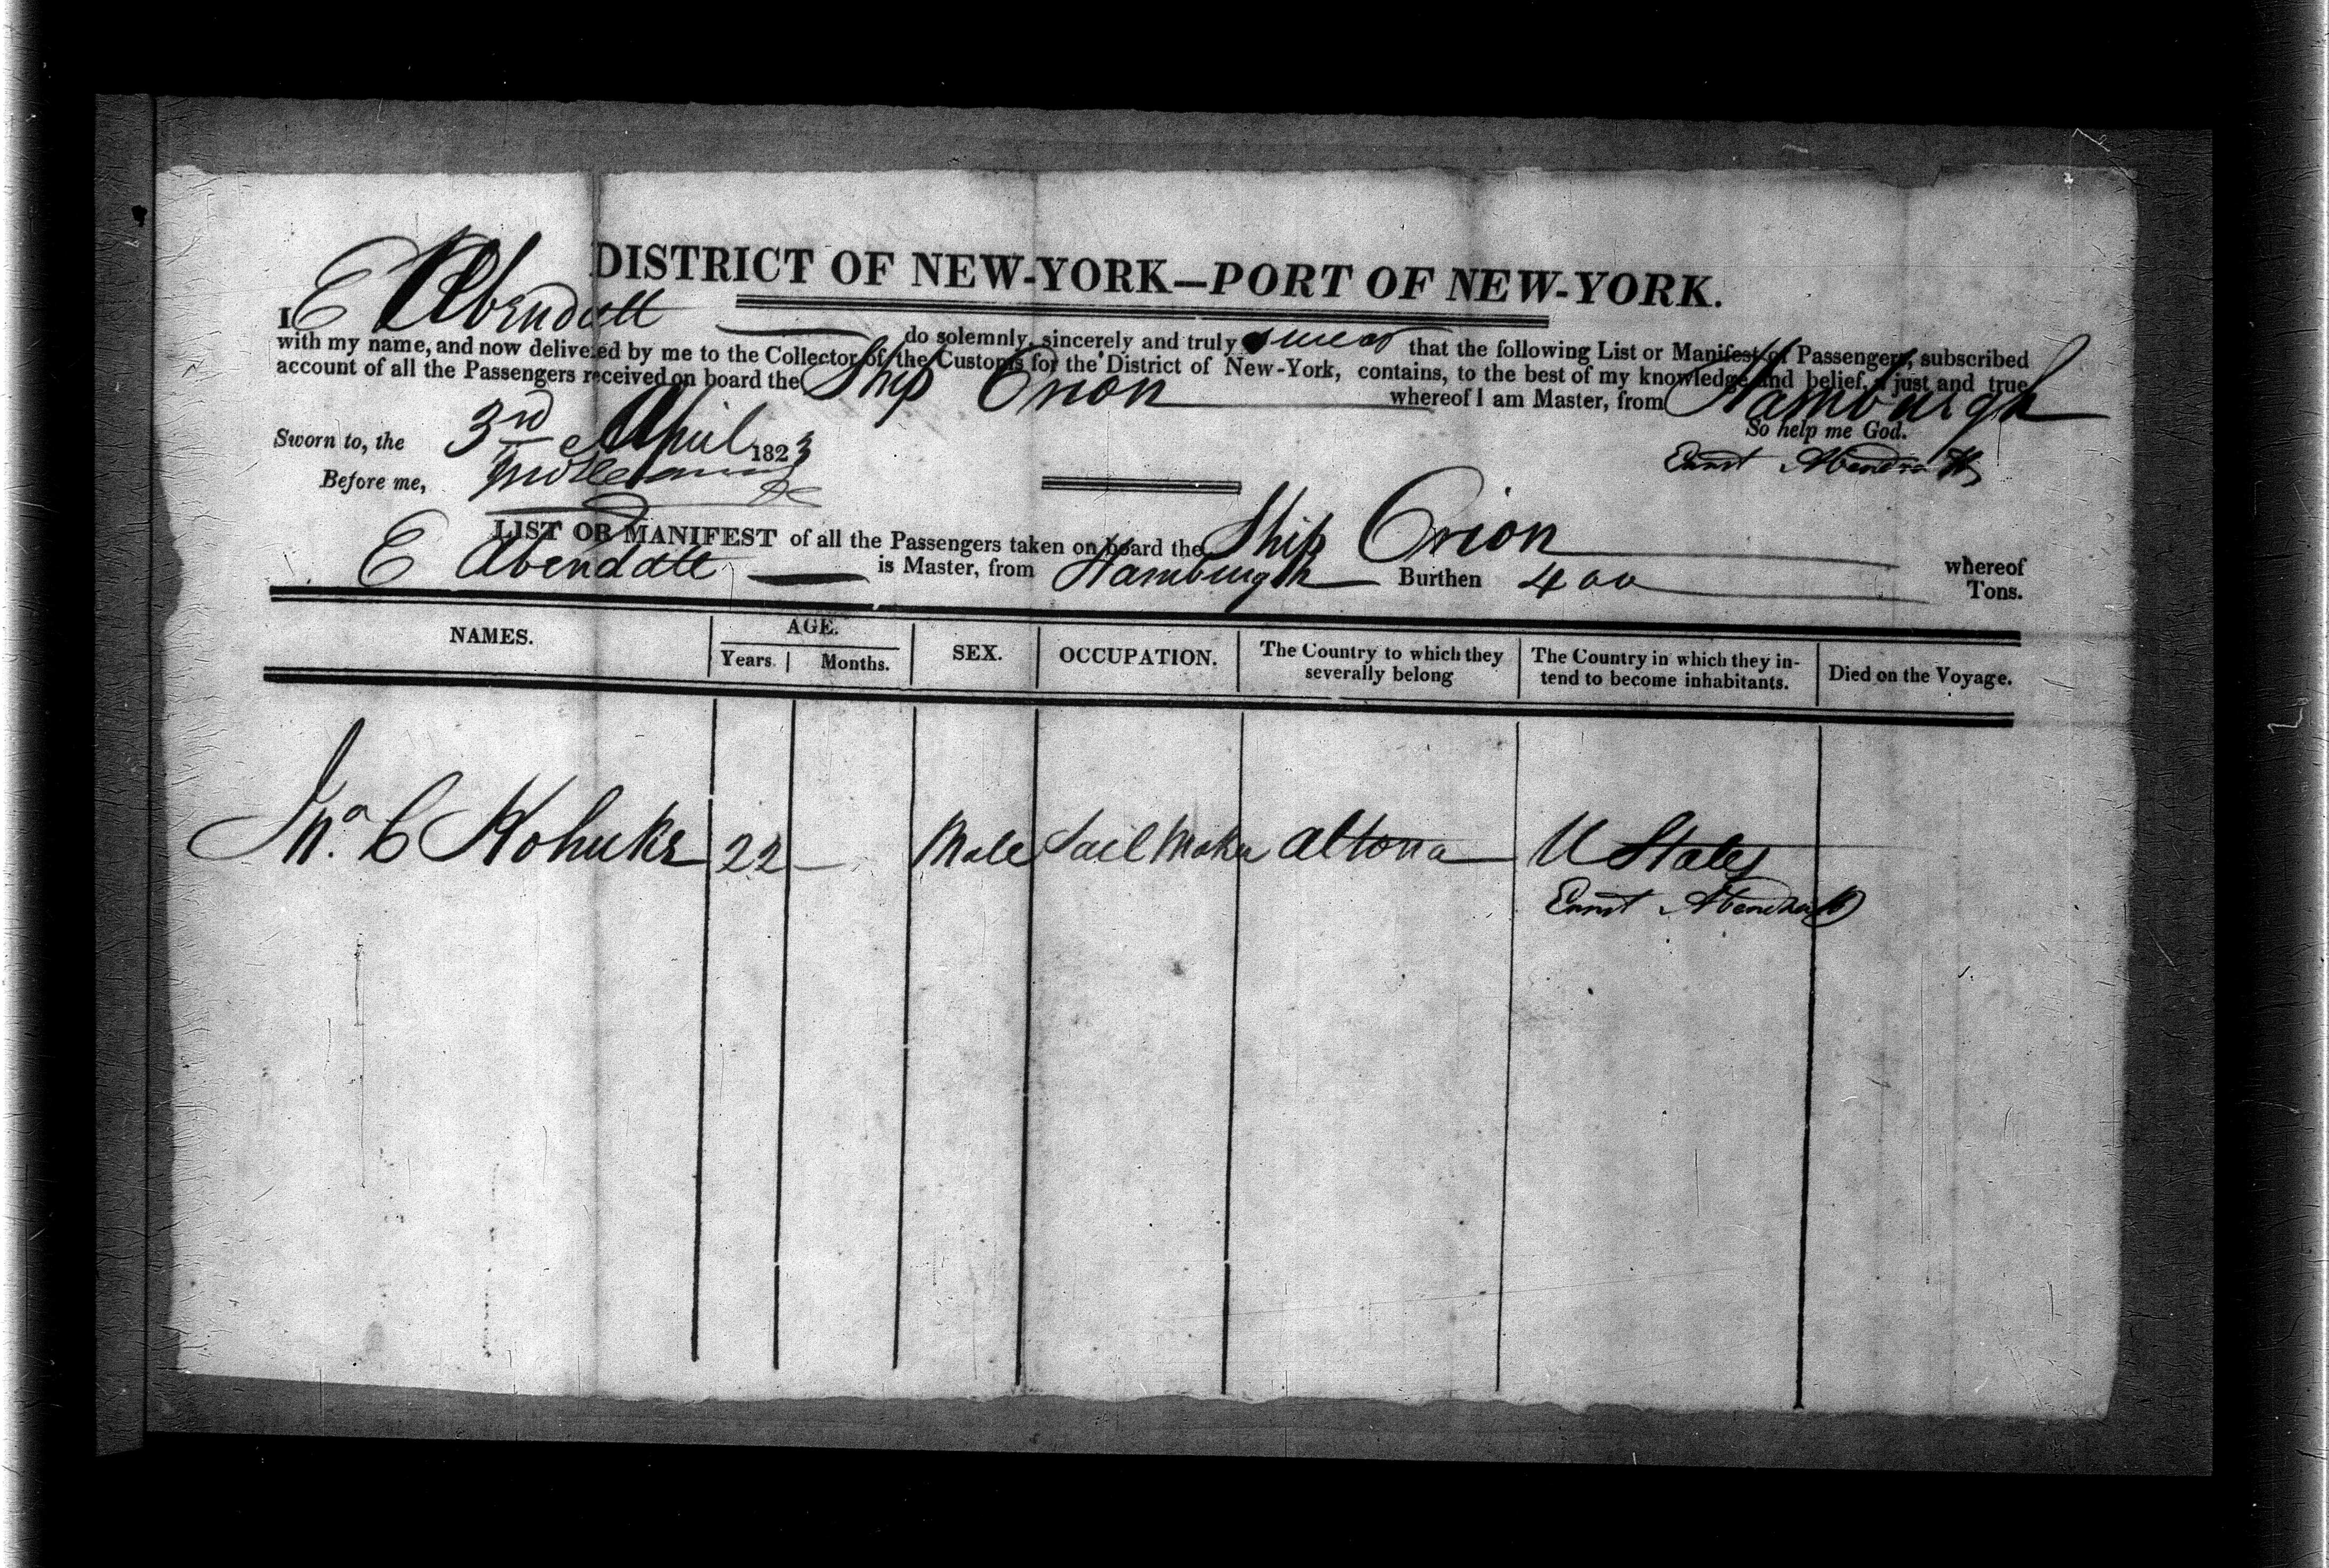 DISTRICT OF NEW-YORK—PORT OF NEW-YORK.
I E Abendatt do solemnly, sincerely and truly swear that the following List or Manifest of Passengers, subscribed
with my name, and now delivered by me to the Collector of the Customs for the District of New-York, contains, to the best of my knowledge and belief, a just and true
account of all the Passengers received on board the Ship Orion whereof I am Master, from Hamburgh
So help me God.
Sworn to, the 3rd April 1823
Ernst Abendroth
Before me,
LIST OR MANIFEST of all the Passengers taken on board the Ship Orion whereof
E Abendatt is Master, from Hamburgh Burthen 400 Tons.
NAMES. AGE. SEX. OCCUPATION. The Country to which they severally belong The Country in which they intend to become inhabitants. Died on the Voyage.
Years. Months.
Jno. C 22 Male Sail Maker Altona U States
Ernst Abendroth